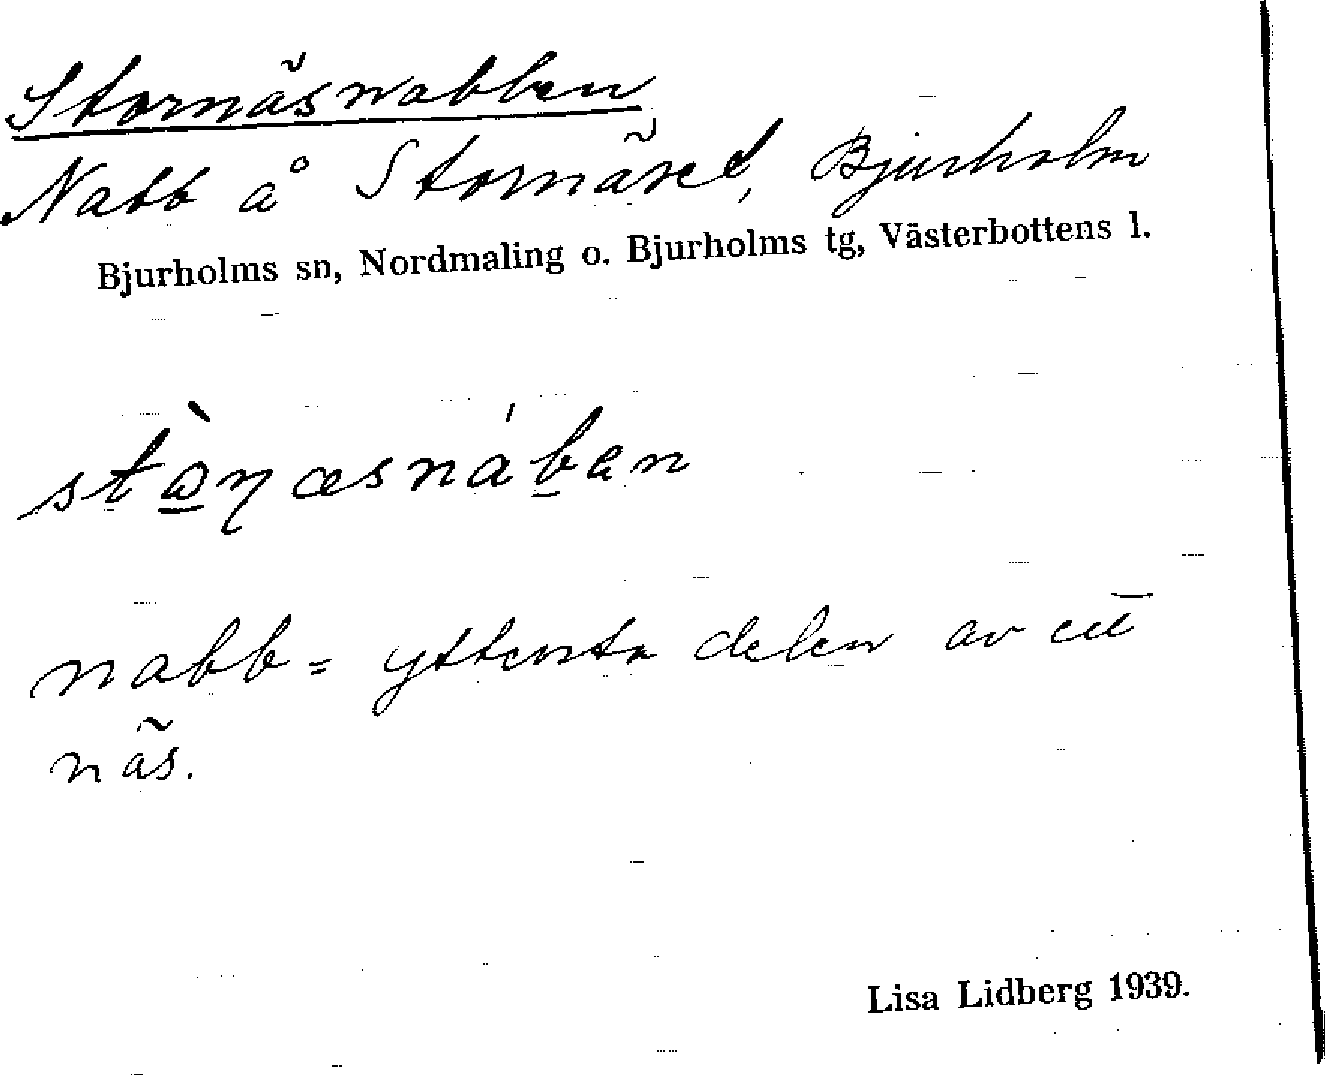 Stornäsnabben
Nabb å Stornäset, Bjurholm
Bjurholms sn, Nordmaling o. Bjurholms tg, Västerbottens l.
nabb = yttersta delen av ett
näs.
Lisa Lidberg 1939.